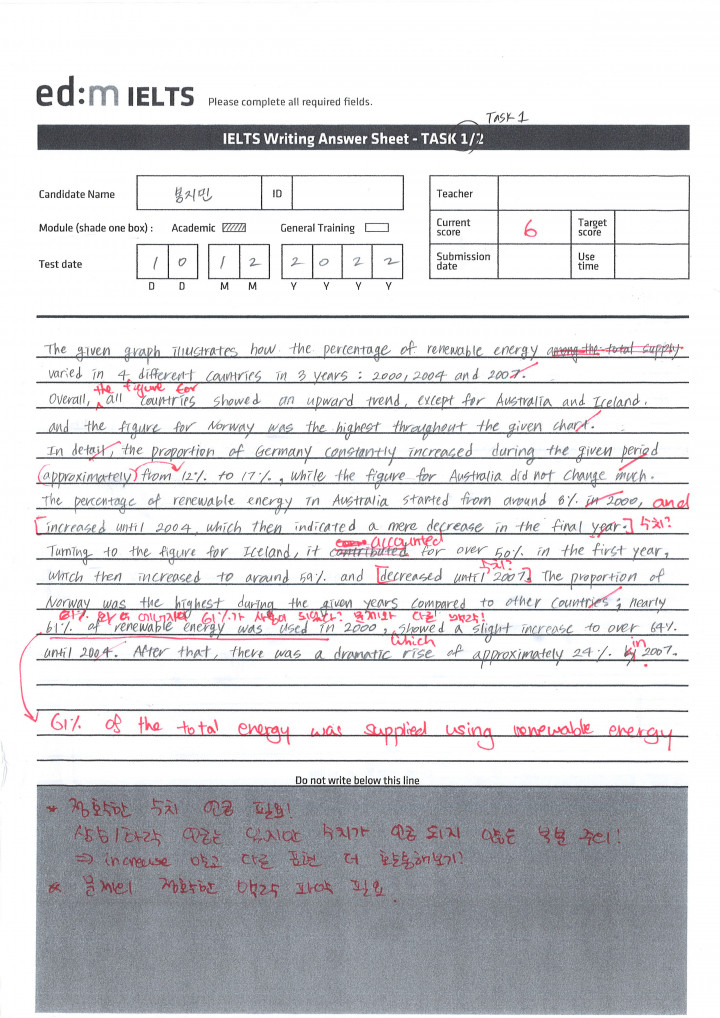 ed:m IELTS Please complete all required fields.
TASK 1
IELTS Writing Answer Sheet - TASK 1/2
Candidate Name 봉지민 ID
Teacher
Module (shade one box) : Academic General Training
Current score 6 Target score
Test date 1 0 1 2 2 0 2 2
Submission date Use time
D D M M Y Y Y Y
The given graph illustrates how the percentage of renewable energy among the total supply
varied in 4 different countries in 3 years : 2000, 2004 and 2007.
the figure for
Overall, all countries showed an upward trend, except for Australia and Iceland.
and the figure for Norway was the highest throughout the given chart.
In detail, the proportion of Germany constantly increased during the given period
(approximately) from 12% to 17%, while the figure for Australia did not change much.
The percentage of renewable energy in Australia started from around 8% in 2000, and
[increased until 2004, which then indicated a mere decrease in the final year.] 수치?
accounted
Turning to the figure for Iceland, it contributed for over 50% in the first year,
수치?
which then increased to around 59% and [decreased until 2007]. The proportion of
Norway was the highest during the given years compared to other countries; nearly
61% 의 에너지가 사용이 되었다? 문제와 다른 맥락!
61% of renewable energy was used in 2000, showed a slight increase to over 64%
which
until 2004. After that, there was a dramatic rise of approximately 24% by 2007.
in
61% of the total energy was supplied using renewable energy
Do not write below this line
* 정확한 수치 언급 필요!
상승/하락 언급은 있지만 수치가 언급 되지 않은 부분 주의!
⇒ increase 말고 다른 표현 더 활용해보기!
* 문제의 정확한 맥락 파악 필요.